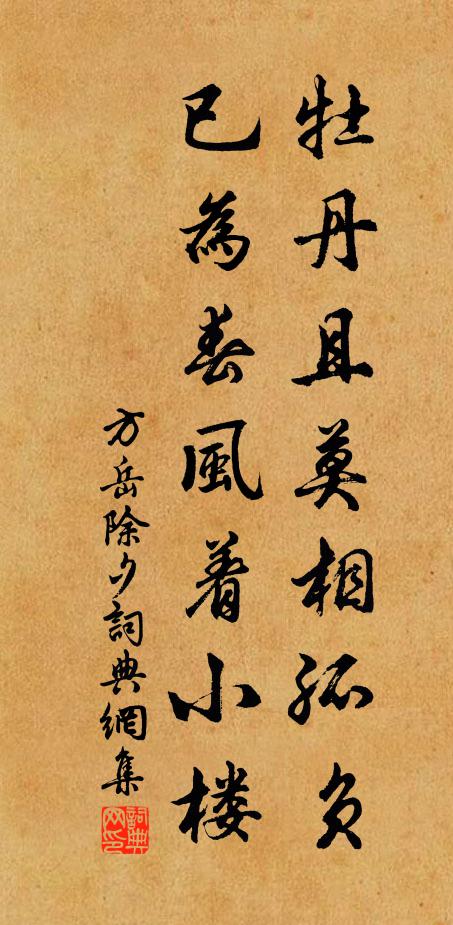 牡丹且莫相孤负
已為春風着小楼
方岳除夕詞典網集
詞典网印